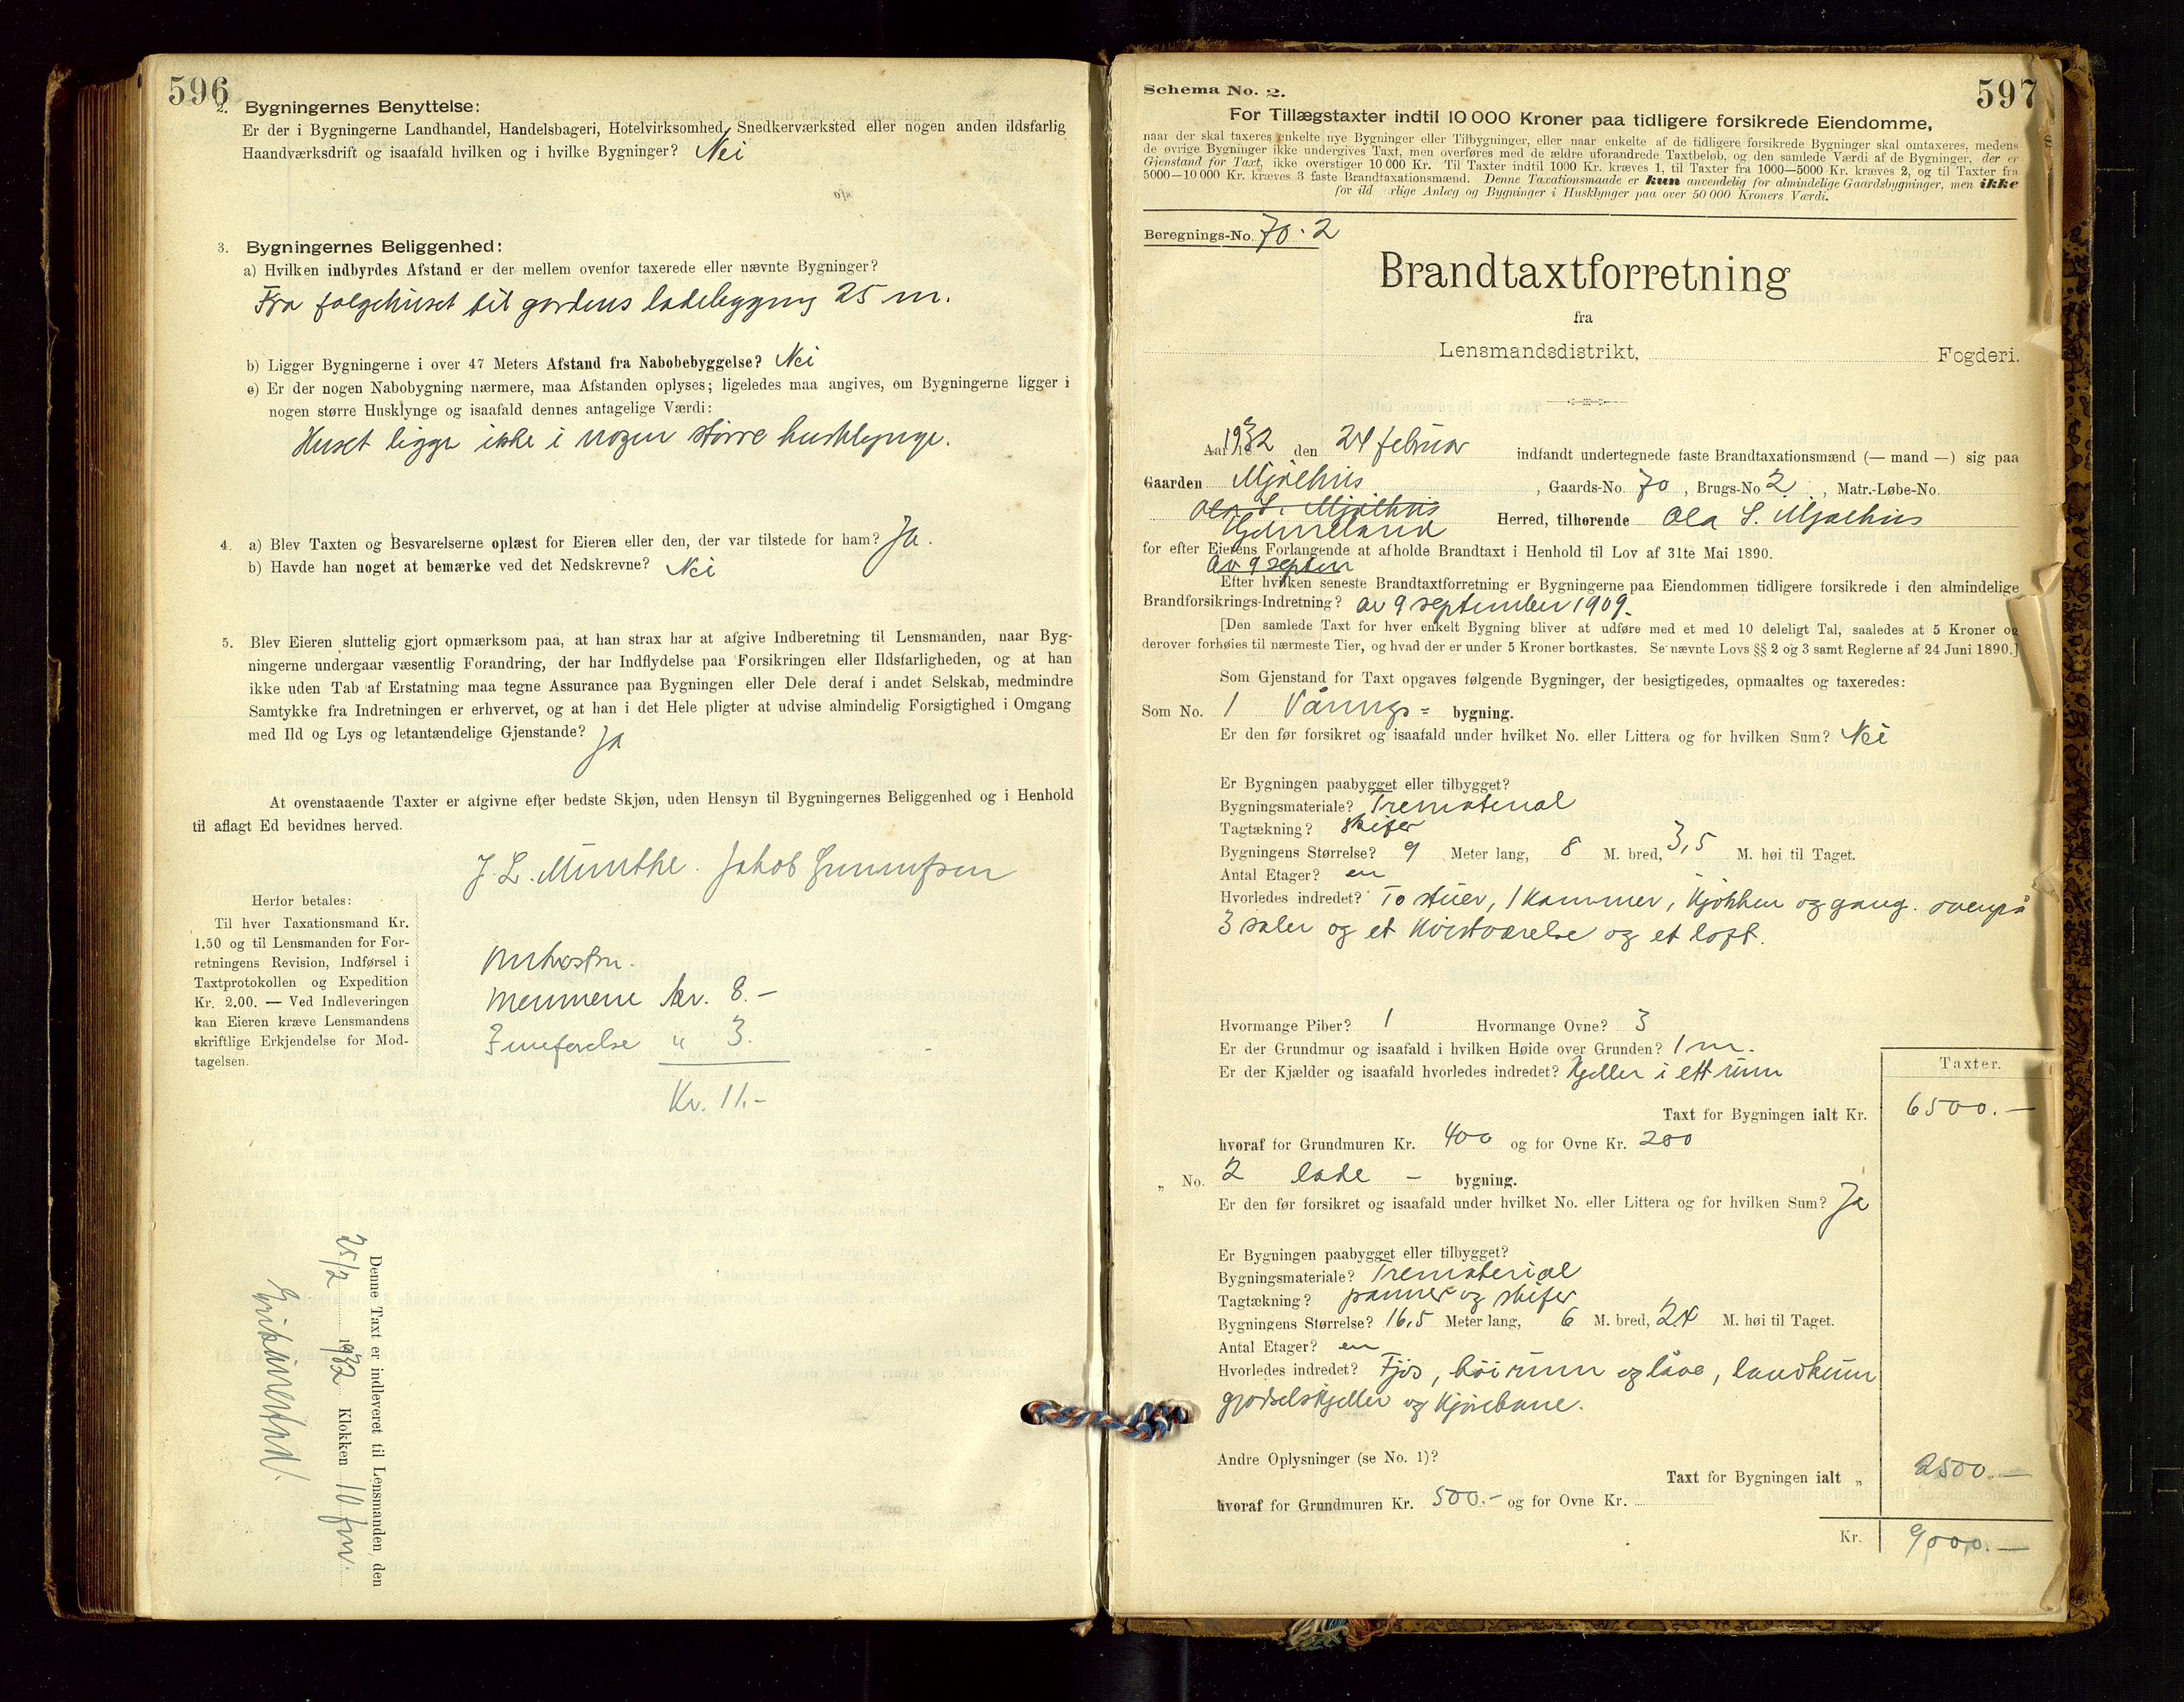 596
2. Bygningernes Benyttelse:
Er der i Bygningerne Landhandel, Handelsbageri, Hotelvirksomhed, Snedkerværksted eller nogen anden ildsfarlig
Haandværksdrift og isaafald hvilken og i hvilke Bygninger? Nei
3. Bygningernes Beliggenhed:
a) Hvilken indbyrdes Afstand er der mellem ovenfor taxerede eller nævnte Bygninger?
Fra folgehuset til gardens ladebygging 25 m.
b) Ligger Bygningerne i over 47 Meters Afstand fra Nabobebyggelse? Nei
c) Er der nogen Nabobygning nærmere, maa Afstanden oplyses; ligeledes maa angives, om Bygningerne ligger i
nogen større Husklynge og isaafald dennes antagelige Værdi:
Huset ligge ikke i nogen större husklynge.
4. a) Blev Taxten og Besvarelserne oplæst for Eieren eller den, der var tilstede for ham? Ja.
b) Havde han noget at bemærke ved det Nedskrevne? Nei
5. Blev Eieren sluttelig gjort opmærksom paa, at han strax har at afgive Indberetning til Lensmanden, naar Byg-
ningerne undergaar væsentlig Forandring, der har Indflydelse paa Forsikringen eller Ildsfarligheden, og at han
ikke uden Tab af Erstatning maa tegne Assurance paa Bygningen eller Dele deraf i andet Selskab, medmindre
Samtykke fra Indretningen er erhvervet, og at han i det Hele pligter at udvise almindelig Forsigtighed i Omgang
med Ild og Lys og letantændelige Gjenstande? Ja
At ovenstaaende Taxter er afgivne efter bedste Skjøn, uden Hensyn til Bygningernes Beliggenhed og i Henhold
til aflagt Ed bevidnes herved.
J. L. Munthe. Jakob
Herfor betales:
Til hver Taxationsmand Kr.
1.50 og til Lensmanden for For-
retningens Revision, Indførsel i
Taxtprotokollen og Expedition
Kr. 2.00. — Ved Indleveringen
kan Eieren kræve Lensmandens
skriftlige Erkjendelse for Mod-
tagelsen.
Mennene kr. 8.-
" 3.
Kr. 11.-
Denne Taxt er indleveret til Lensmanden, den
25/2 1932 Klokken 10 fm.
597
Schema No. 2.
For Tillægstaxter indtil 10 000 Kroner paa tidligere forsikrede Eiendomme,
naar der skal taxeres enkelte nye Bygninger eller Tilbygninger, eller naar enkelte af de tidligere forsikrede Bygninger skal omtaxeres, medens
de øvrige Bygninger ikke undergives Taxt, men overføres med de ældre uforandrede Taxtbeløb, og den samlede Værdi af de Bygninger, der er
Gjenstand for Taxt, ikke overstiger 10 000 Kr. Til Taxter indtil 1000 Kr. kræves 1, til Taxter fra 1000—5000 Kr. kræves 2, og til Taxter fra
5000—10 000 Kr. kræves 3 faste Brandtaxationsmænd. Denne Taxationsmaade er kun anvendelig for almindelige Gaardsbygninger, men ikke
for ild rlige Anlæg og Bygninger i Husklynger paa over 50 000 Kroners Værdi.
Beregnings-No. 70.2
Brandtaxtforretning
fra
Lensmandsdistrikt, Fogderi.
Aar 1932 den 24 februar indfandt undertegnede faste Brandtaxationsmænd (— mand —) sig paa
Gaarden Mjølhus, Gaards-No. 70, Brugs-No 2, Matr.-Løbe-No.
Ola S. Mjølhus
Gdmeland Herred, tilhørende Ola S. Mjølhus
for efter Eierens Forlangende at afholde Brandtaxt i Henhold til Lov af 31te Mai 1890.
av 9 septem
Efter hvilken seneste Brandtaxtforretning er Bygningerne paa Eiendommen tidligere forsikrede i den almindelige
Brandforsikrings-Indretning? av 9 september 1909.
[Den samlede Taxt for hver enkelt Bygning bliver at udføre med et med 10 deleligt Tal, saaledes at 5 Kroner og
derover forhøies til nærmeste Tier, og hvad der er under 5 Kroner bortkastes. Se nævnte Lovs §§ 2 og 3 samt Reglerne af 24 Juni 1890.]
Som Gjenstand for Taxt opgaves følgende Bygninger, der besigtigedes, opmaaltes og taxeredes:
Som No. 1 Vånings= bygning.
Er den før forsikret og isaafald under hvilket No. eller Littera og for hvilken Sum? Nei
Er Bygningen paabygget eller tilbygget?
Bygningsmateriale? Trematerial
Tagtækning? skifer
Bygningens Størrelse? 9 Meter lang, 8 M. bred, 3,5 M. høi til Taget.
Antal Etager? en
Hvorledes indredet? To stuer, 1 kammer, kjøkken og gang. ovenpå
3 saler og et kvistværelse og et loft.
Hvormange Piber? 1 Hvormange Ovne? 3
Er der Grundmur og isaafald i hvilken Høide over Grunden? 1 m.
Er der Kjælder og isaafald hvorledes indredet? Kjeller i ett rum
Taxter.
Taxt for Bygningen ialt Kr. 6500.—
hvoraf for Grundmuren Kr. 400 og for Ovne Kr. 200
„ No. 2 lade - bygning.
Er den før forsikret og isaafald under hvilket No. eller Littera og for hvilken Sum? Ja
Er Bygningen paabygget eller tilbygget?
Bygningsmateriale? Trematerial
Tagtækning? panner og skifer
Bygningens Størrelse? 16,5 Meter lang, 6 M. bred, 24 M. høi til Taget.
Antal Etager? en
Hvorledes indredet? Fjøs, høirum og låve, landkum
gjødselskjeller og kjørebane.
Andre Oplysninger (se No. 1)?
Taxt for Bygningen ialt „ 2500.—
hvoraf for Grundmuren Kr. 500.- og for Ovne Kr.
Kr. 9000.—